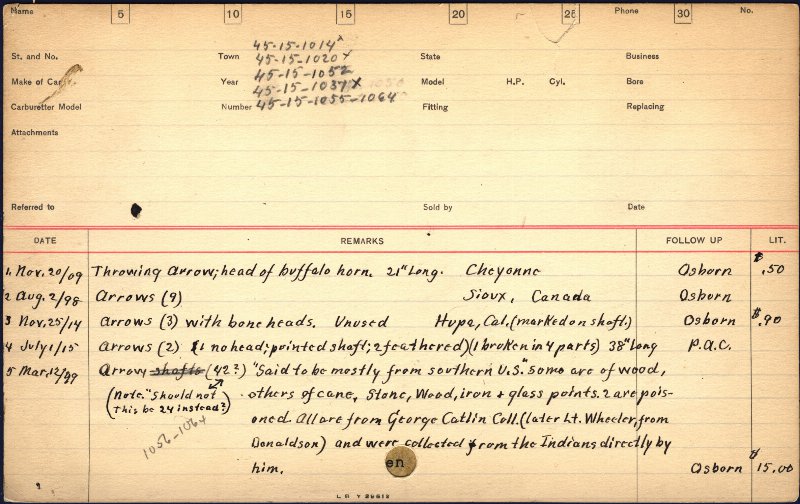 Name 5 10 15 20 25 Phone 30 No.
45-15-1014x
St. and No. Town 45-15-1020x State Business
45-15-1052
Make of Car Year 45-15-1037x Model H.P. Cyl. Bore
Carburetter Model Number 45-15-1055-1064 Fitting Replacing
Attachments
Referred to Sold by Date
DATE REMARKS FOLLOW UP LIT.
1. Nov. 20/09 Throwing arrow; head of buffalo horn. 21" Long. Cheyenne Osborn $.50
2 Aug. 2/98 Arrows (9) Sioux, Canada Osborn
3 Nov. 25/14 Arrows (3) with bone heads. Unused Hupa, Cal. (marked on shaft.) Osborn $.90
4 July 1/15 Arrows (2) (1 no head; pointed shaft; 2 feathered) (1 broken in 4 parts) 38" Long P.a.C.
5 Mar. 12/99 Arrow shafts (42?) "Said to be mostly from southern U.S." Some are of wood,
(Note. "Should not this be 24 instead?) others of cane, Stone, Wood, iron + glass points. 2 are pois-
oned. All are from George Catlin Coll. (later Lt. Wheeler, from
1056-1064 Donaldson) and were collected from the Indians directly by
him. Osborn $15.00
en
L B Y 29613